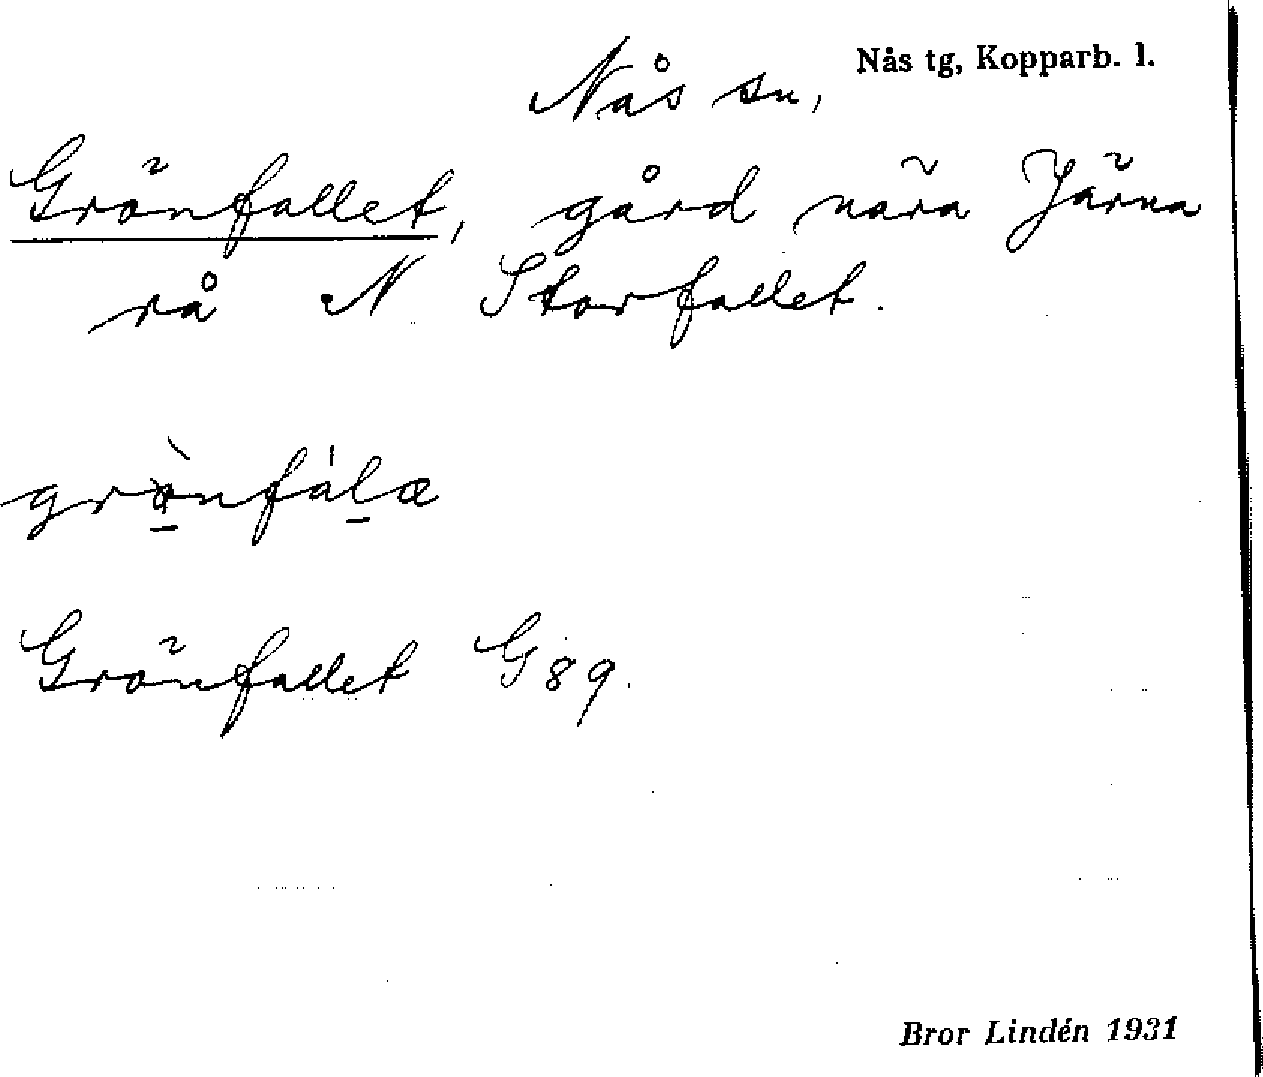 Nås tg, Kopparb. l.
Nås sn,
Grönfallet, gård nära Järna
rå N Storfallet.
grö̀nfálæ
Grönfallet G 89.
Bror Lindén 1931